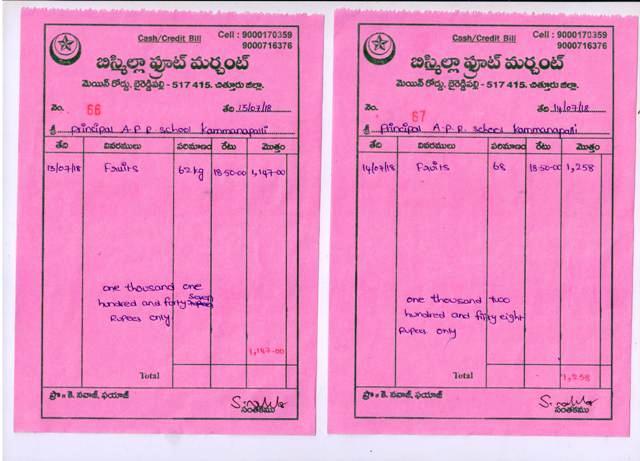 Cash/Credit Bill
Cell : 9000170359
9000716376
బిస్మిల్లా ఫ్రూట్ మర్చంట్
మెయిన్ రోడ్డు, బైరెడ్డిపల్లి - 517 415. చిత్తూరు జిల్లా.
నెం. 66 తేది 13/07/18
శ్రీ Principal A.P.R school Kammanapalli
తేది వివరములు పరిమాణం రేటు మొత్తం
13/07/18 Fruits 62kg 18-50-00 1,147-00
one thousand one
hundred and forty seven
Rupees only
1,147-00
Total
ప్రొ॥ కె. నవాజ్, ఫయాజ్
సంతకము
Cash/Credit Bill
Cell : 9000170359
9000716376
బిస్మిల్లా ఫ్రూట్ మర్చంట్
మెయిన్ రోడ్డు, బైరెడ్డిపల్లి - 517 415. చిత్తూరు జిల్లా.
నెం. 67 తేది 14/07/18
శ్రీ Principal A-P-R. school Kammanapalli
తేది వివరములు పరిమాణం రేటు మొత్తం
14/07/18 Fruits 68 18-50-00 1,258
one thousand two
hundred and fifty eight
Rupees only
Total 1,258
ప్రొ॥ కె. నవాజ్, ఫయాజ్
సంతకము